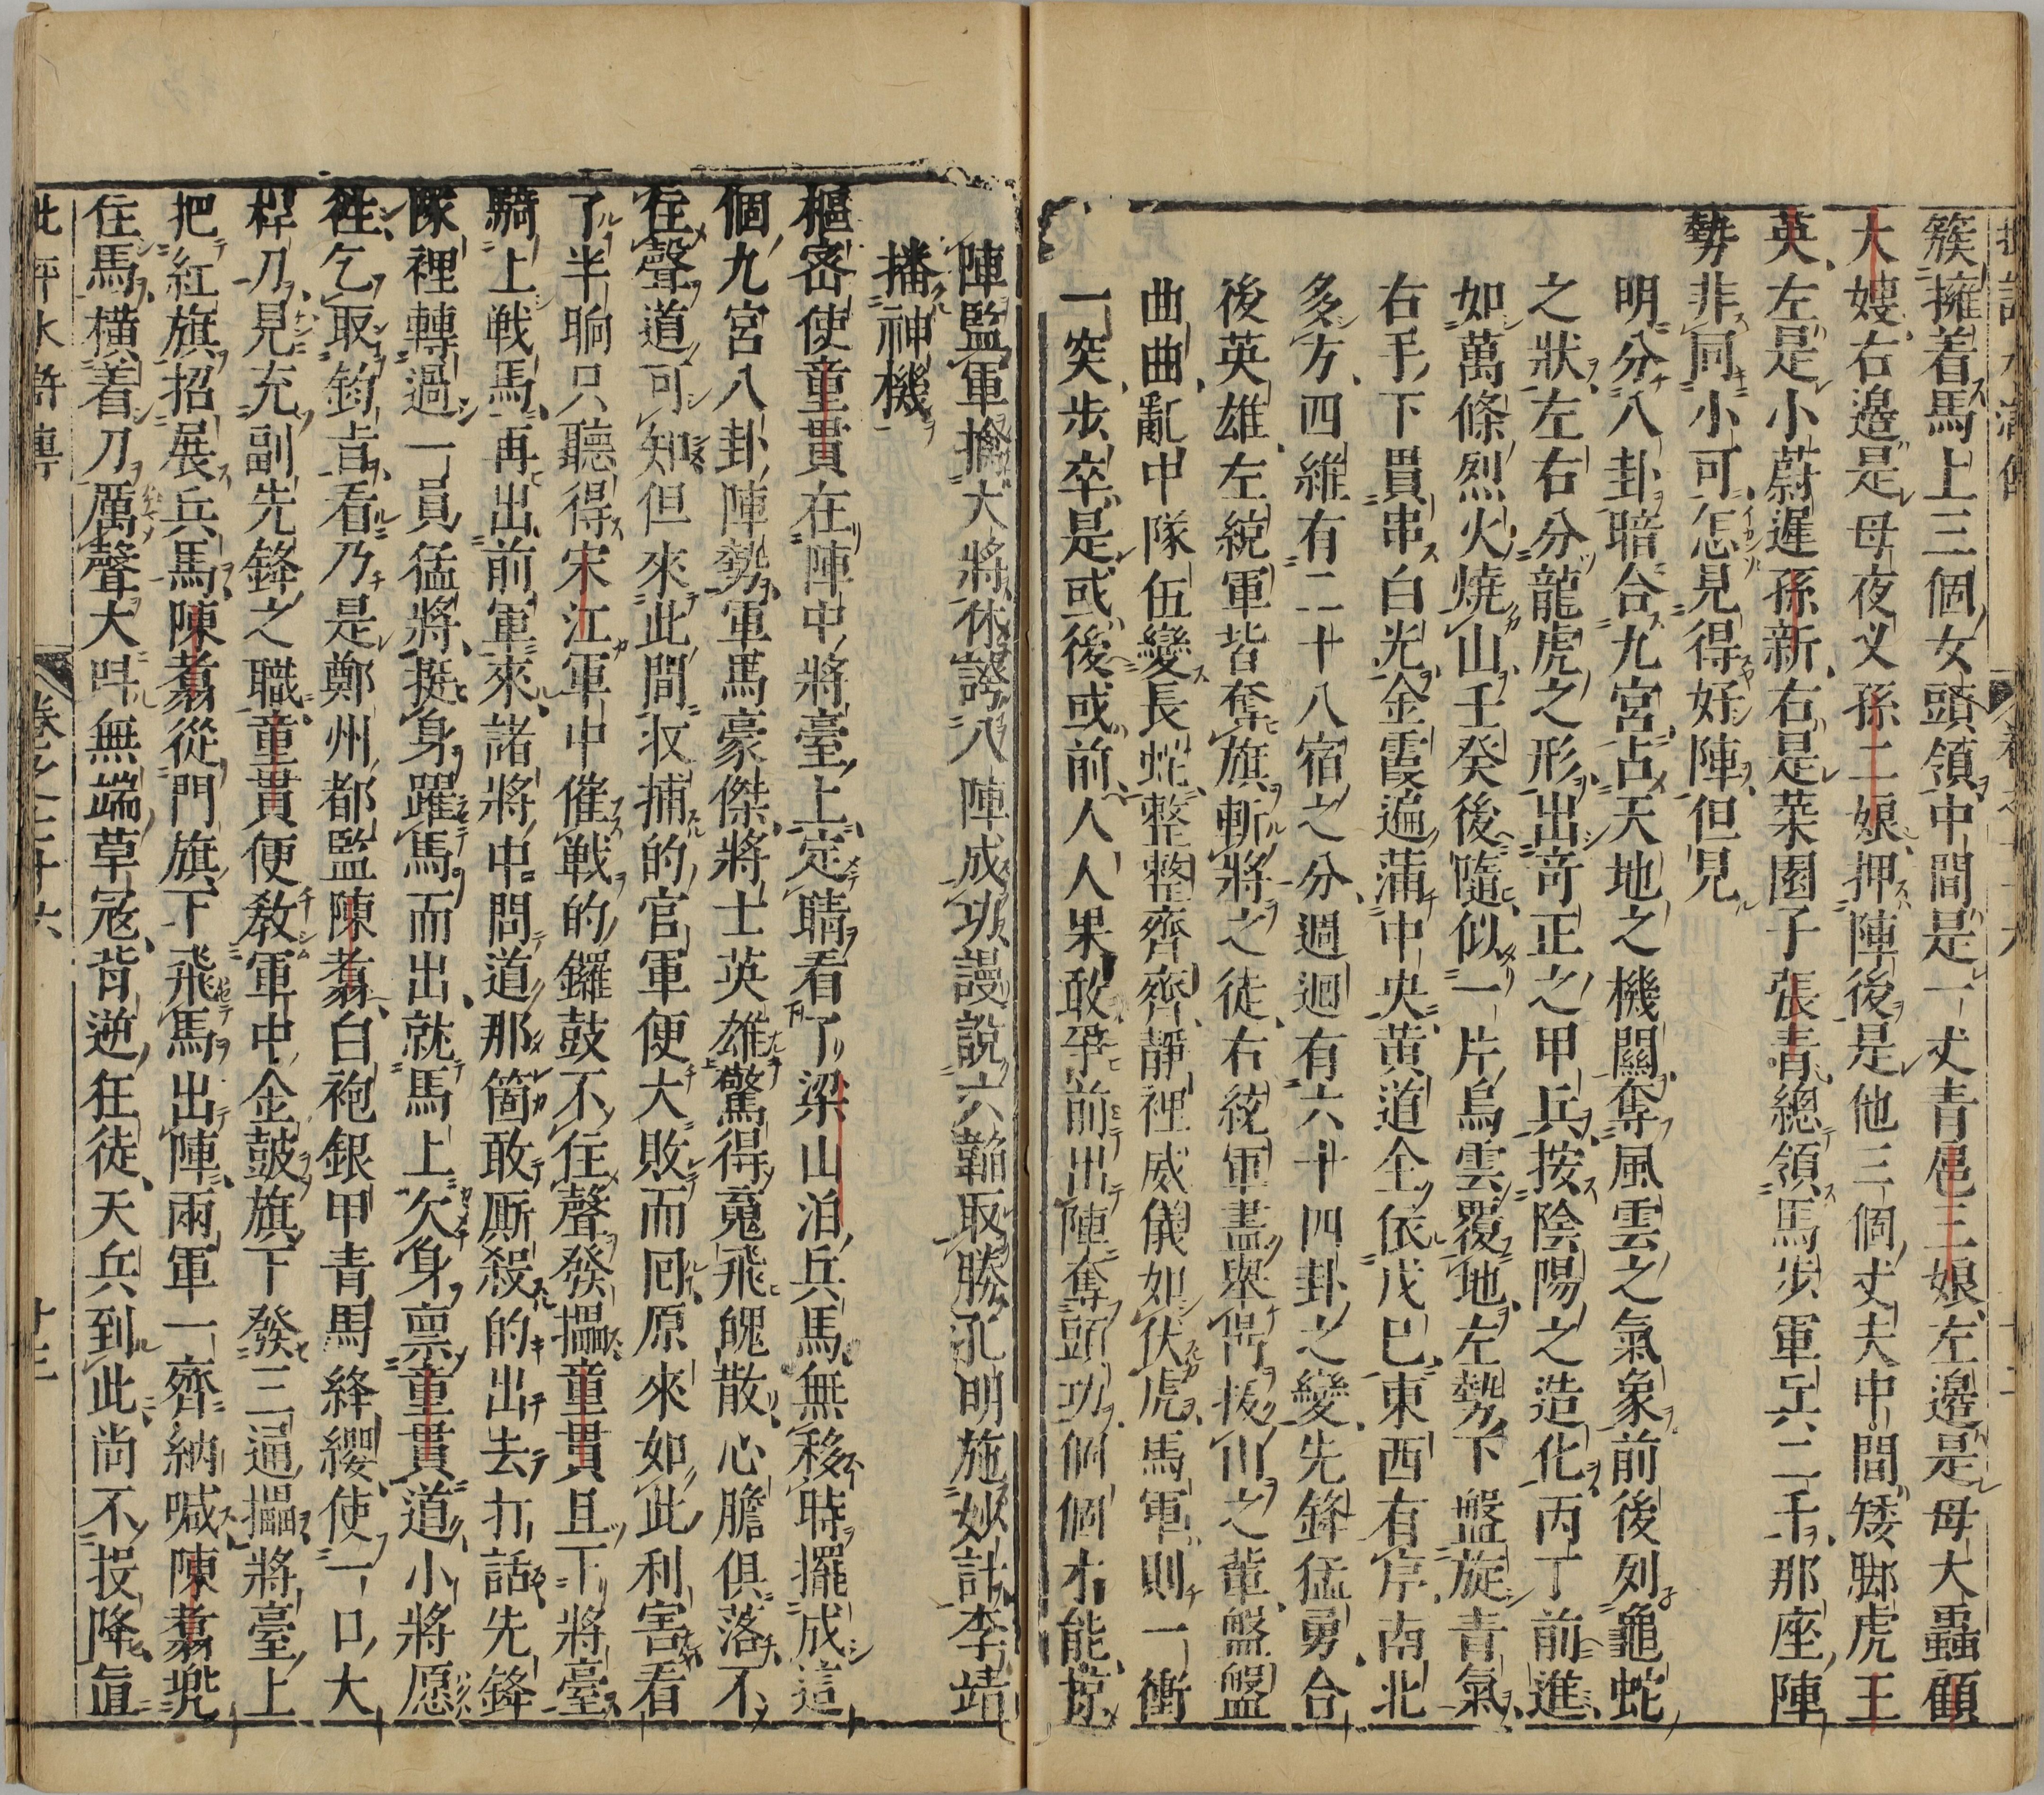 簇擁着馬上三個女頭領中間是一丈青扈三娘左邊是母大蟲顧
大嫂右邊是母夜叉孫二娘押陣後是他三個丈夫中間矮脚虎王
英左是小蔚遲孫新右是菜園子張青總領馬步軍兵二千那座陣
勢非同小可怎見得好陣但見
明分八卦暗合九宮占天地之機關奪風雲之氣象前後列龜蛇
之狀左右分龍虎之形出奇正之甲兵按陰陽之造化丙丁前進
如萬條烈火燒山壬癸後隨似一片烏雲覆地左勢下盤旋青氣
右手下貫串白光金霞遍滿中央黃道全依戊巳東西有序南北
多方四維有二十八宿之分週迴有六十四卦之變先鋒猛勇合
後英雄左統軍皆奪旗斬將之徒右統軍盡舉儁拔山之輩盤盤
曲曲亂中隊伍變長蛇整整齊齊靜裡威儀如伏虎馬軍則一衝
一突步卒是或後或前人人果敢爭前出陣奪頭功個個才能掠
陣監軍擒大將休誇八陣成功謾說六韜取勝孔明施妙計李靖
播神機
樞密使童貫在陣中將臺上定睛看了梁山泊兵馬無移時擺成這
個九宮八卦陣勢軍馬豪傑將士英雄驚得䰟飛魄散心膽俱落不
住聲道可知但來此間收捕的官軍便大敗而囘原來如此利害看
了半晌只聽得宋江軍中催戦的鑼鼓不住聲發擂童貫且下將臺
騎上戦馬再出前軍來諸將中問道那箇敢厮殺的出去打話先鋒
隊裡轉過一員猛將挺身躍馬而出就馬上欠身禀童貫道小將愿
徃乞取鈞旨看乃是鄭州都監陳翥白袍銀甲青馬絳纓使一口大
桿刀見充副先鋒之職童貫便敎軍中金皷旗下發三通擂將臺上
把紅旗招展兵馬陳翥從門旗下飛馬出陣兩軍一齊納喊陳翥兠
住馬橫着刀厲聲大呌無端草冦背逆狂徒天兵到此尚不投降直
此評水滸傳　卷之二十六　十三